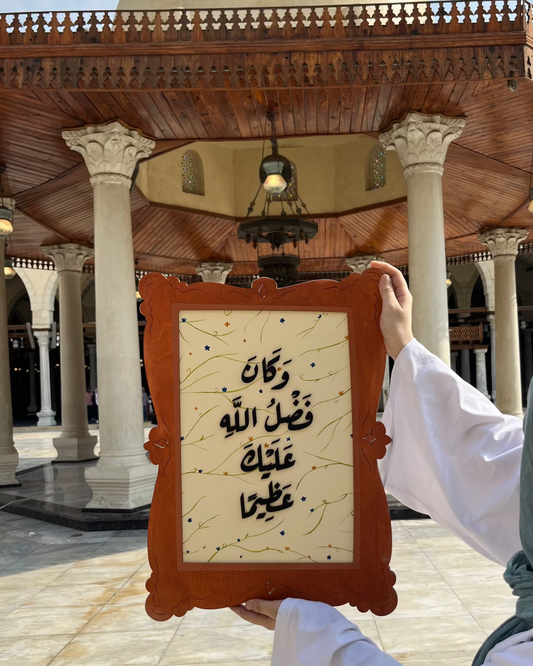 وَكَانَ
فَضْلُ اللَّهِ
عَلَيْكَ
عَظِيمًا